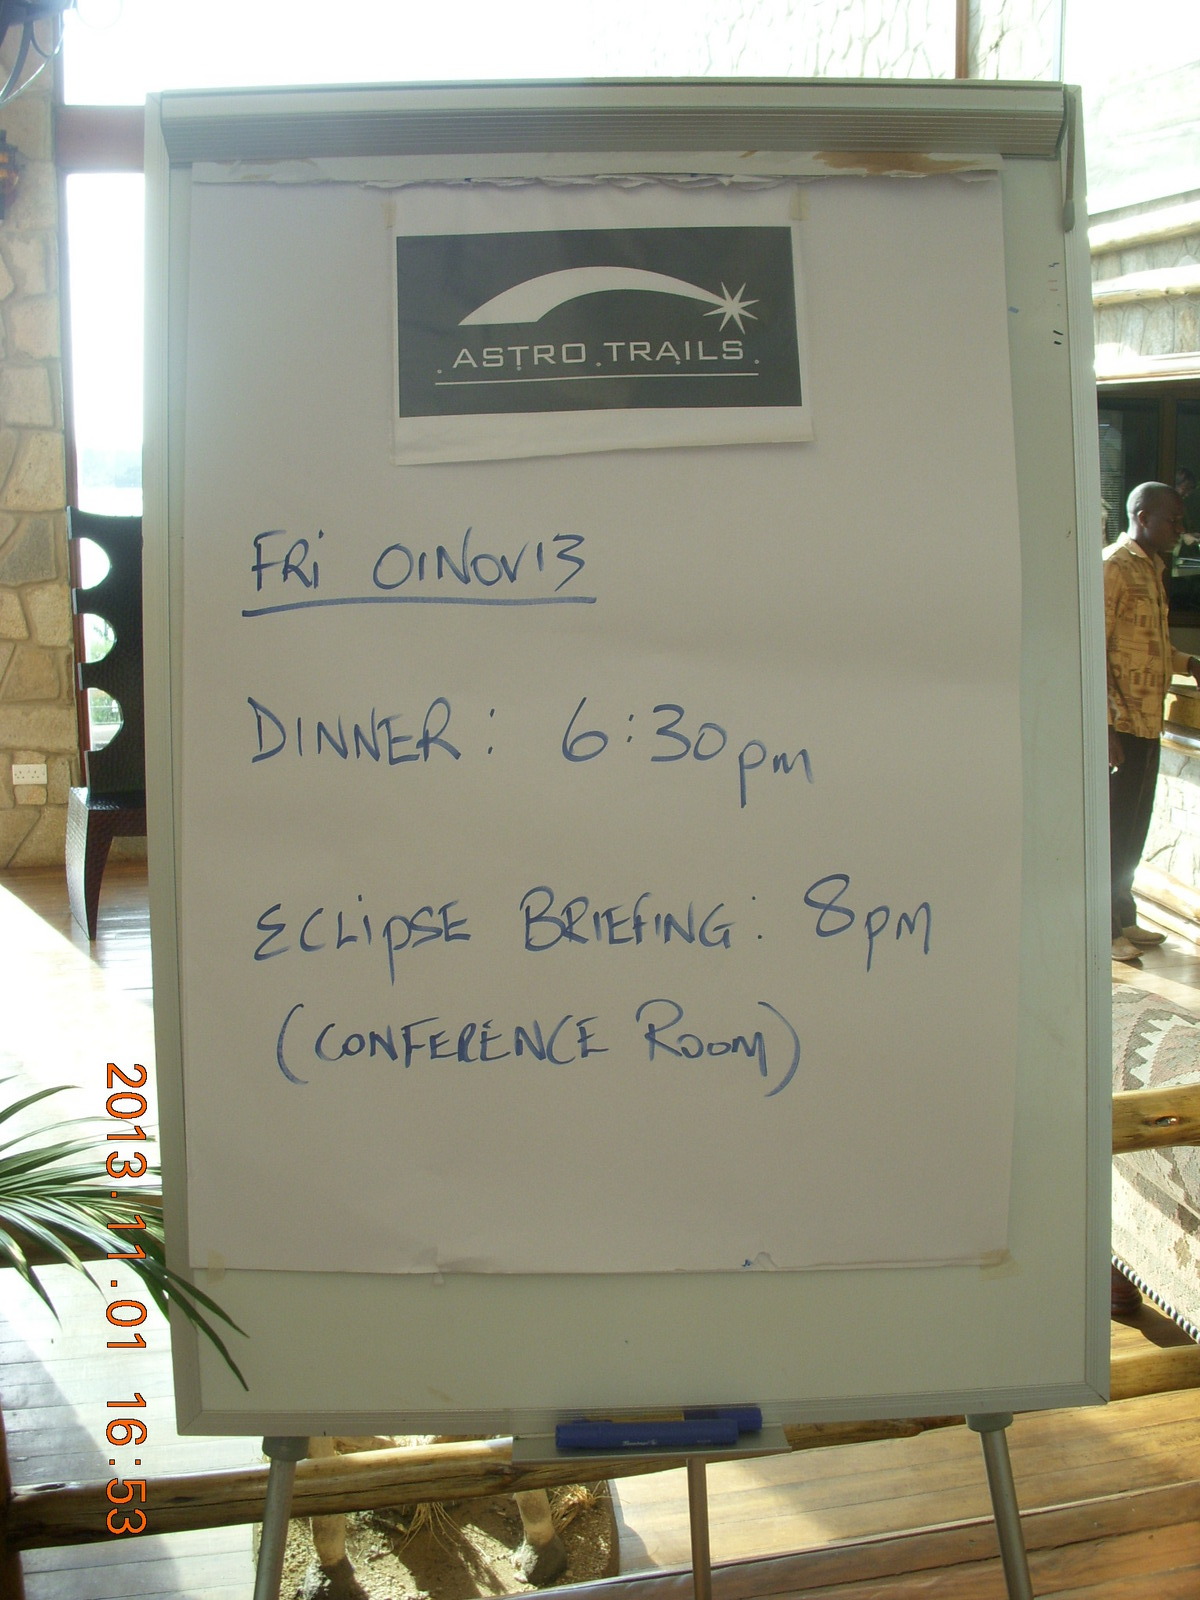 ASTRO TRAILS
FRi 01NOV13
DINNER: 6:30pm
ECLIPSE BRIEFING: 8PM
(CONFERENCE ROOM)
2013.11.01 16:53